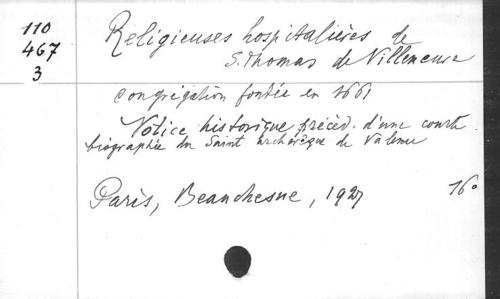 110
467
3
Religieuses hospitalières de
S. Thomas de Villeneuve
congrégation fondée en 1661
Notice historique précéd. d'une courte
biographie du Saint archevêque de Valence
Paris, Beauchesne, 1927
16°